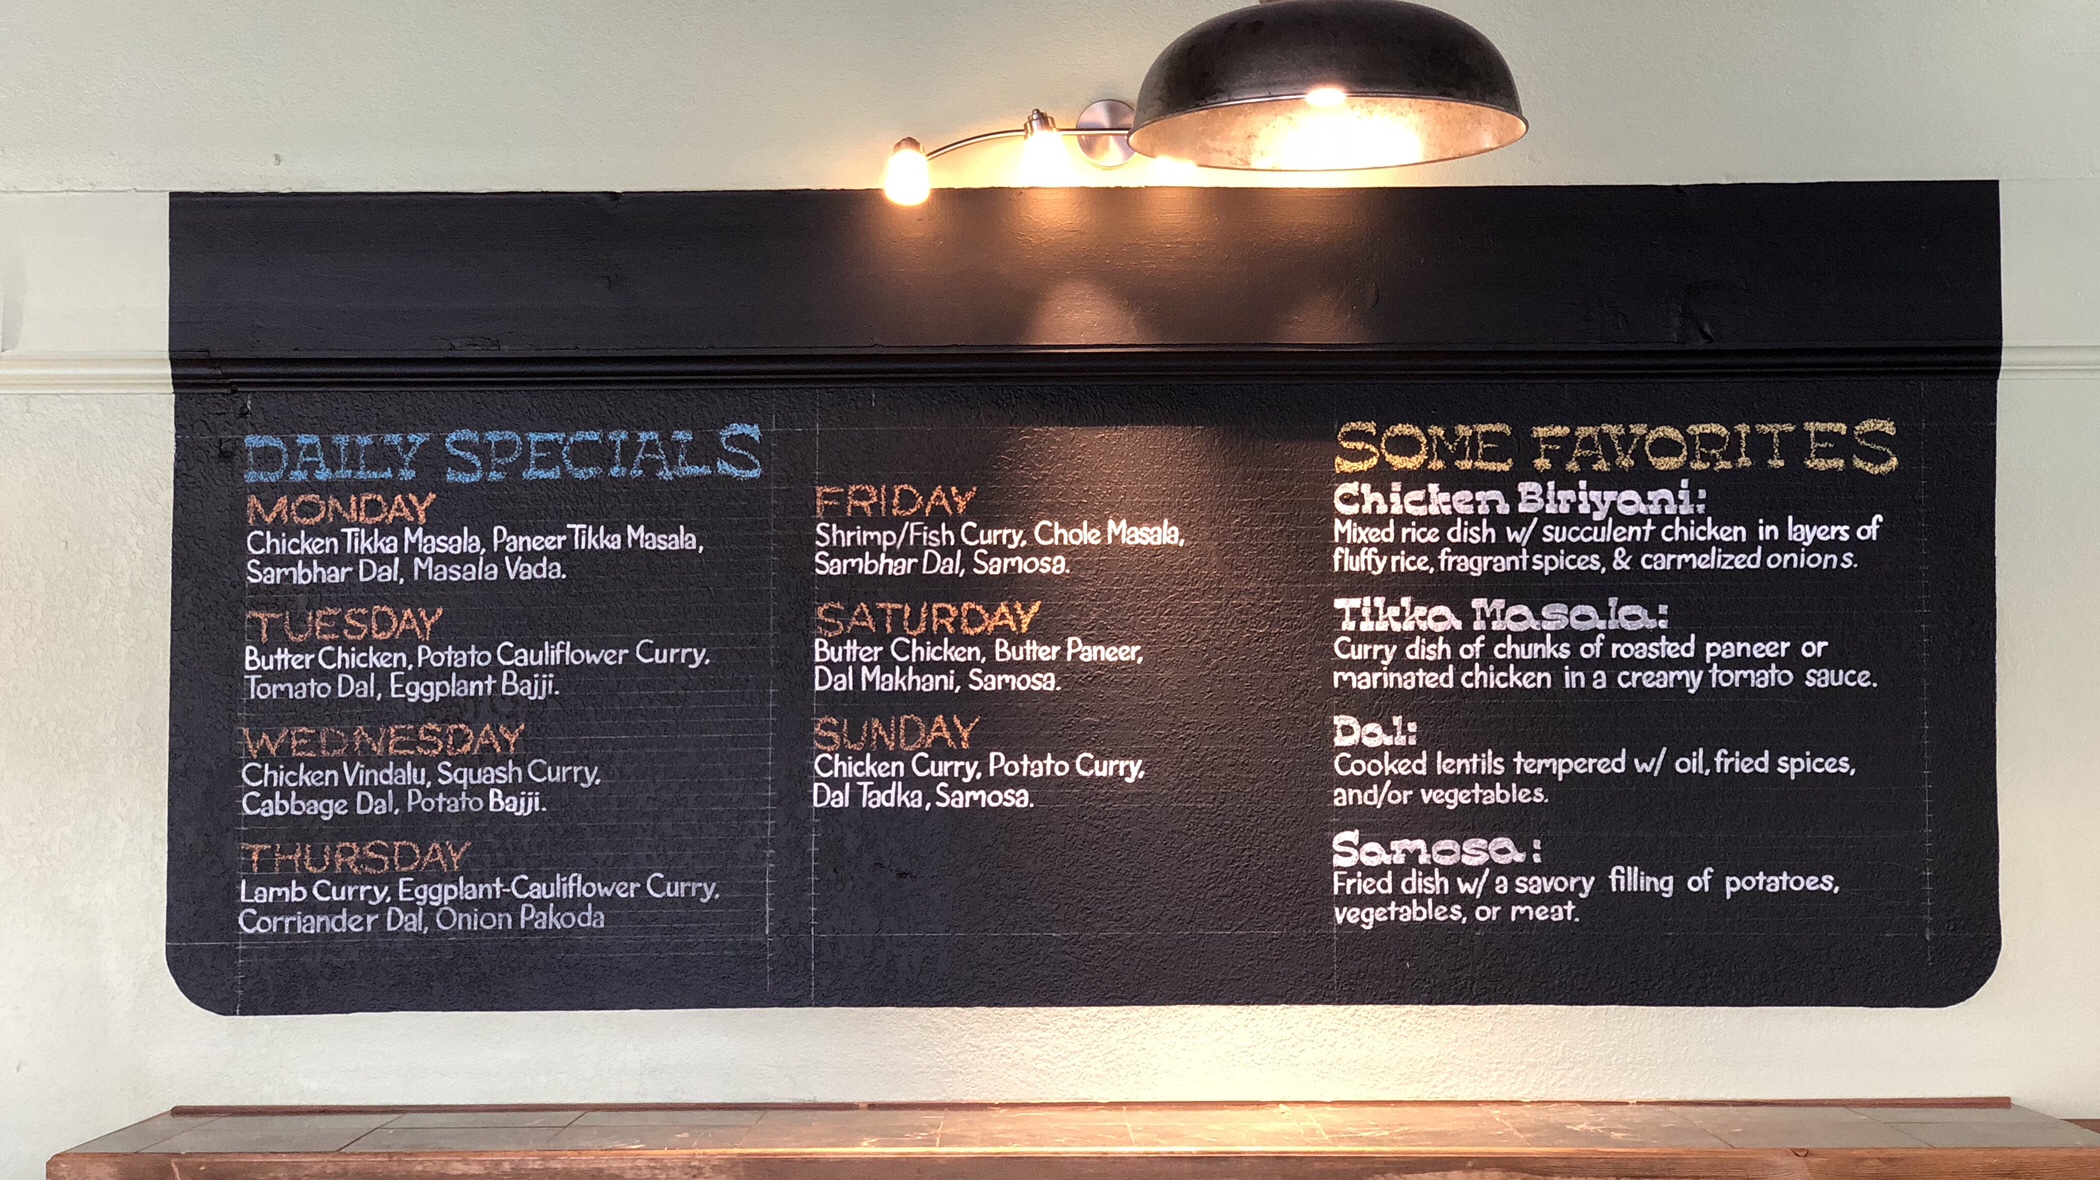 DAILY SPECIALS
MONDAY
Chicken Tikka Masala, Paneer Tikka Masala,
Sambhar Dal, Masala Vada.
TUESDAY
Butter Chicken, Potato Cauliflower Curry,
Tomato Dal, Eggplant Bajji.
WEDNESDAY
Chicken Vindalu, Squash Curry,
Cabbage Dal, Potato Bajji.
THURSDAY
Lamb Curry, Eggplant-Cauliflower Curry,
Corriander Dal, Onion Pakoda
FRIDAY
Shrimp/Fish Curry, Chole Masala,
Sambhar Dal, Samosa.
SATURDAY
Butter Chicken, Butter Paneer,
Dal Makhani, Samosa.
SUNDAY
Chicken Curry, Potato Curry,
Dal Tadka, Samosa.
SOME FAVORITES
Chicken Biriyani:
Mixed rice dish w/ succulent chicken in layers of
fluffy rice, fragrant spices, & carmelized onions.
Tikka Masala:
Curry dish of chunks of roasted paneer or
marinated chicken in a creamy tomato sauce.
Dal:
Cooked lentils tempered w/ oil, fried spices,
and/or vegetables.
Samosa:
Fried dish w/ a savory filling of potatoes,
vegetables, or meat.